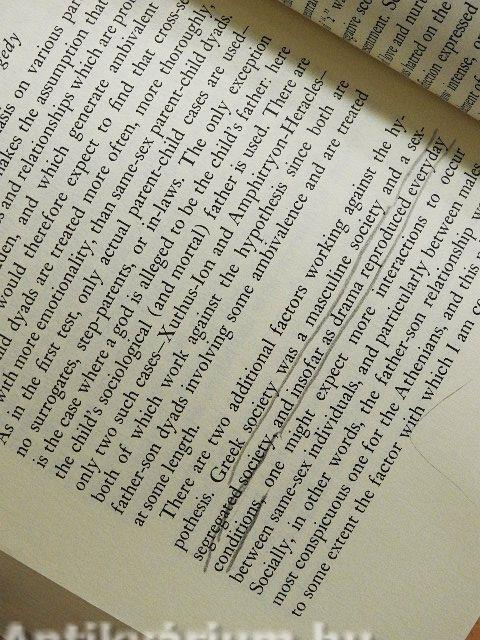 gedy
asis on various par
akes the assumption that
s and relationships which are pro
en, and which generate ambivalent
would therefore expect to find that cross-s
nd dyads are treated more often, more thoroughly,
with more emotionality, than same-sex parent-child dyads.
As in the first test, only actual parent-child cases are used—
no surrogates, step-parents, or in-laws. The only exception
is the case where a god is alleged to be the child's father; here
the child's sociological (and mortal) father is used. There are
only two such cases—Xuthus-Ion and Amphitryon-Heracles—
both of which work against the hypothesis since both are
father-son dyads involving some ambivalence and are treated
at some length.
There are two additional factors working against the hy-
pothesis. Greek society was a masculine society and a sex-
segregated society, and insofar as drama reproduces everyday
conditions, one might expect more interactions to occur
between same-sex individuals, and particularly between males.
Socially, in other words, the father-son relationship
most conspicuous one for the Athenians, and this
to some extent the factor with which I am co
Antikvárium.hu